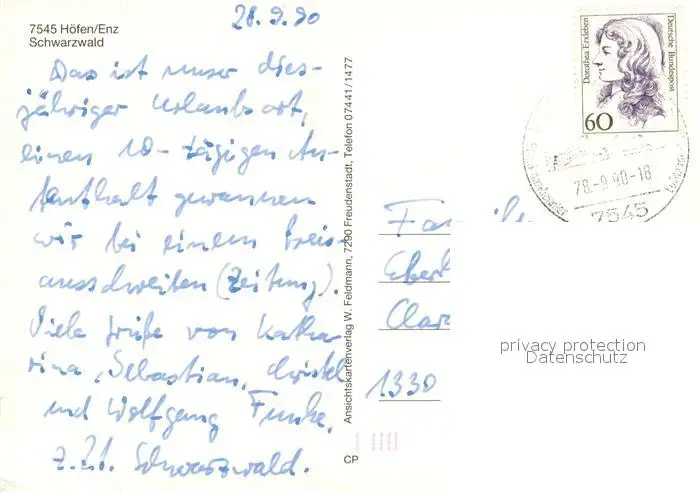 28.9.90
7545 Höfen/Enz
Schwarzwald
Das ist unser dies-
jähriger Urlaubsort,
einen 10-tägigen Au-
fenthalt gewannen
wir bei einem Preis-
ausschreiben (Zeitung).
Viele Grüße von Katha-
rina, Sebastian, Christel
und Wolfgang Funke,
z.Zt. Schwarzwald.
Ansichtskartenverlag W. Feldmann, 7290 Freudenstadt, Telefon 07441/1477
CP
Dorothea Erxleben
Deutsche Bundespost
60
28.-9.90-18
7545
Eberh
Clara
1330
privacy protection
Datenschutz